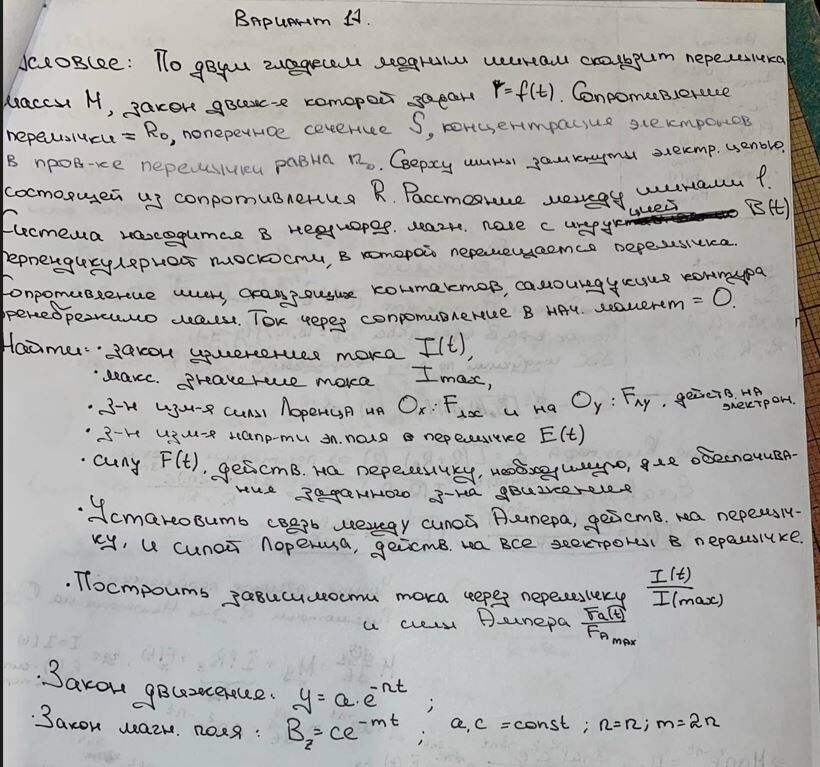 Вариант 11.
Условие: По двум гладким медным шинам скользит перемычка
массы М, закон движ-я которой задан Y=f(t). Сопротивление
перемычки = R₀, поперечное сечение S, концентрация электронов
в пров-ке перемычки равна n₀. Сверху шины замкнуты электр. цепью,
состоящей из сопротивления R. Расстояние между шинами l.
Система находится в неоднород. магн. поле с индукцией B(t)
перпендикулярной плоскости, в которой перемещается перемычка.
Сопротивление шин, скользящих контактов, самоиндукция контура
пренебрежимо малы. Ток через сопротивление в нач. момент = 0.
Найти: · закон изменения тока I(t),
· макс. значение тока Imax,
· з-н изм-я силы Лоренца на Ox: Fлx и на Oy: Fлy, действ. на электрон.
· з-н изм-я напр-ти эл. поля в перемычке E(t)
· силу F(t), действ. на перемычку, необходимую, для обеспечива-
ния заданного з-на движения
· Установить связь между силой Ампера, действ. на перемыч-
ку, и силой Лоренца, действ. на все электроны в перемычке.
· Построить зависимости тока через перемычку I(t)/I(max)
и силы Ампера Fa(t)/FAmax
· Закон движение: y = a·e^-nt ;
· Закон магн. поля : Bz = ce^-mt ; a, c = const ; n=n; m=2n